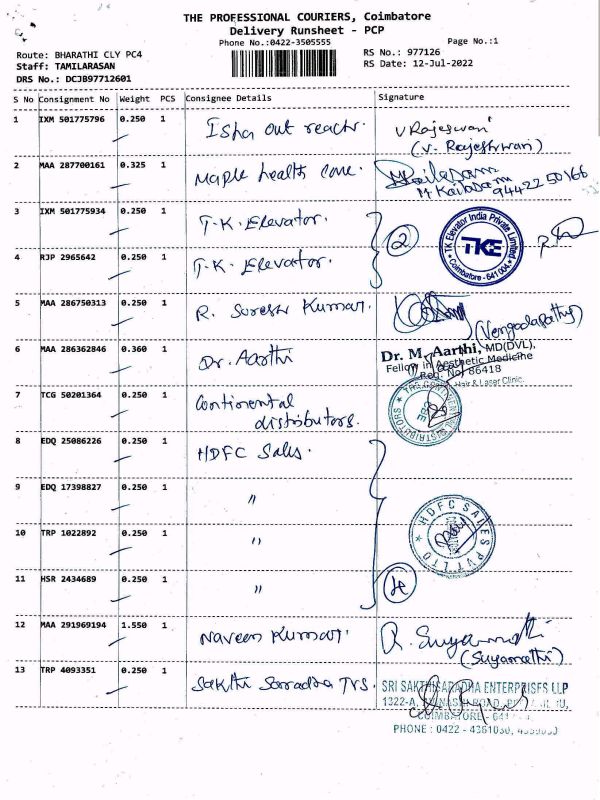 THE PROFESSIONAL COURIERS, Coimbatore
Delivery Runsheet - PCP
Phone No.:0422-3505555
Page No.:1
Route: BHARATHI CLY PC4
RS No.: 977126
Staff: TAMILARASAN
RS Date: 12-Jul-2022
DRS No.: DCJB97712601
S No Consignment No Weight PCS Consignee Details Signature
1 IXM 501775796 0.250 1 Isha out reach. V Rajeswari
(V. Rajeshwari)
2 MAA 287700161 0.325 1 Maple health care. Kailasam
M Kailasam
94422 50166
3 IXM 501775934 0.250 1 T.K. Elevator.
TK Elevator India Private Limited
TKE
Coimbatore - 641 004.
2
4 RJP 2965642 0.250 1 T.K. Elevator.
5 MAA 286750313 0.250 1 R. Suresh Kumar.
(Vengadapathy)
6 MAA 286362846 0.360 1 Dr. Aarthi
Dr. M. Aarthi, MD(DVL),
Fellow in Aesthetic Medicine
Reg. No. 86418
Hair & Laser Clinic.
7 TCG 50201364 0.250 1 Continental
distributors.
THE CONTINENTAL DISTRIBUTORS
CBE
8 EDQ 25086226 0.250 1 HDFC Sales.
9 EDQ 17398827 0.250 1 "
HDFC SALES PVT LTD
10 TRP 1022892 0.250 1 "
11 HSR 2434689 0.250 1 "
4
12 MAA 291969194 1.550 1 Naveen Kumar. R. Suyamathi
(Suyamathi)
13 TRP 4093351 0.250 1 Sakthi Sarradha TVS.
SRI SAKTHISARADHA ENTERPRISES LLP
1322-A, AVINASHI ROAD,
COIMBATORE - 641
PHONE : 0422 - 4361030,